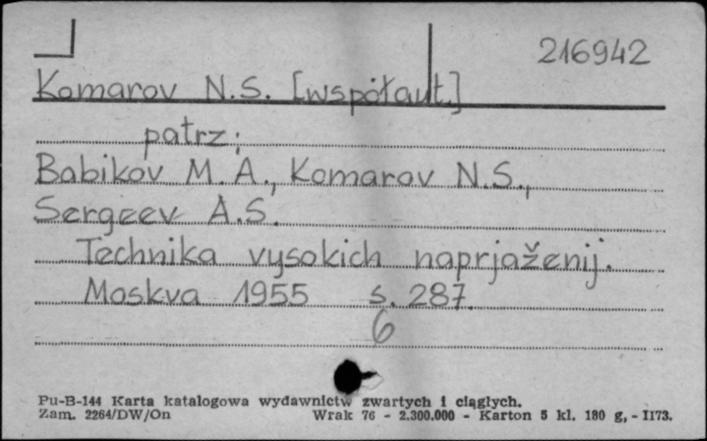 216942
Komarov N.S. [współaut.]
patrz:
Babikov M.A., Komarov N.S.,
Sergeev A.S.
Technika vysokich naprjaženij.
Moskva 1955 s. 287.
6
Pu-B-144 Karta katalogowa wydawnictw zwartych i ciągłych.
Zam. 2264/DW/On Wrak 76 - 2.300.000 - Karton 5 kl. 180 g, - II73.